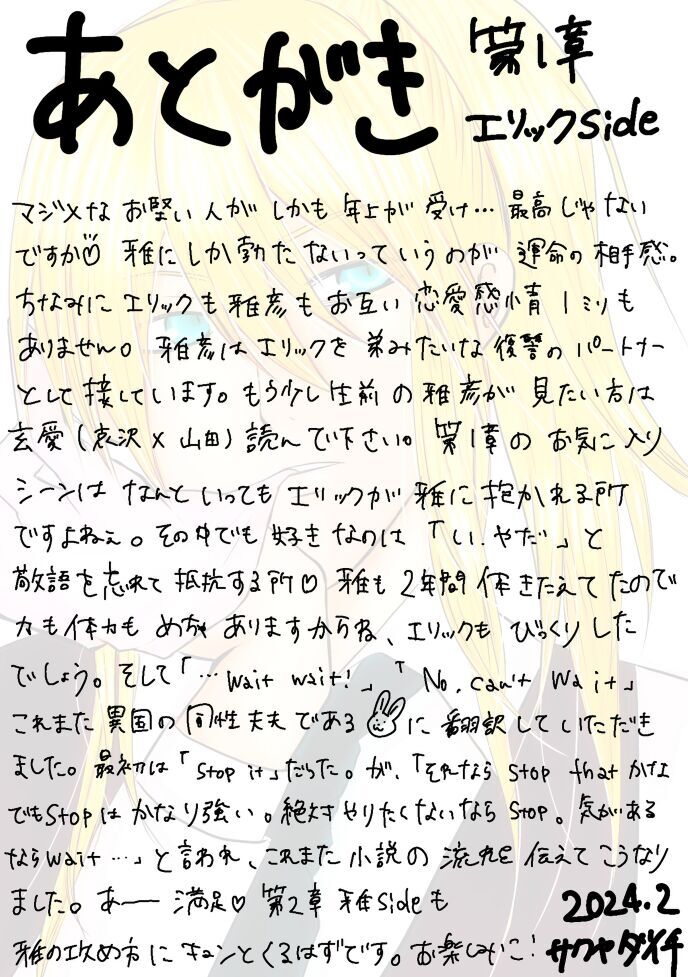 あとがき 第1章
エリックside
マジメな お堅い 人が しかも 年上が 受け… 最高じゃない
ですか♡ 雅にしか勃たないっていうのが 運命の相手感。
ちなみに エリックも 雅彦も お互い 恋愛感情 1ミリも
ありません。雅彦は エリックを 弟みたいな 復讐の パートナー
として 接しています。もう少し 生前の 雅彦が 見たい方は
玄愛(哀沢×山田)読んで下さい。第1章の お気に入り
シーンは なんといっても エリックが 雅に 抱かれる所
ですよねぇ。その中でも 好きなのは 「い.やだ」と
敬語を忘れて 抵抗する所♡ 雅も 2年間 体きたえてたので
力も体力も めちゃ ありますからね、エリックも びっくりした
でしょう。そして「…wait wait!」「No, can't wait」
これまた 異国の 同性夫夫である に 翻訳していただき
ました。最初は「stop it」だった。が、「それなら stop that かな
でもstopは かなり強い。絶対やりたくないなら stop。気がある
なら wait…」と言われ、これまた 小説の 流れを 伝えて こうなり
ました。あー 満足♡ 第2章 雅sideも
雅の攻め方に キュンとくるはずです。お楽しみに!
2024.2
サクヤダイチ